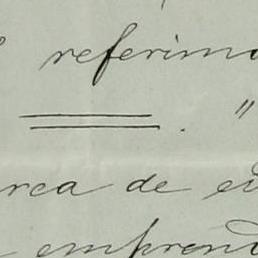 referim
"
rca de
emprend